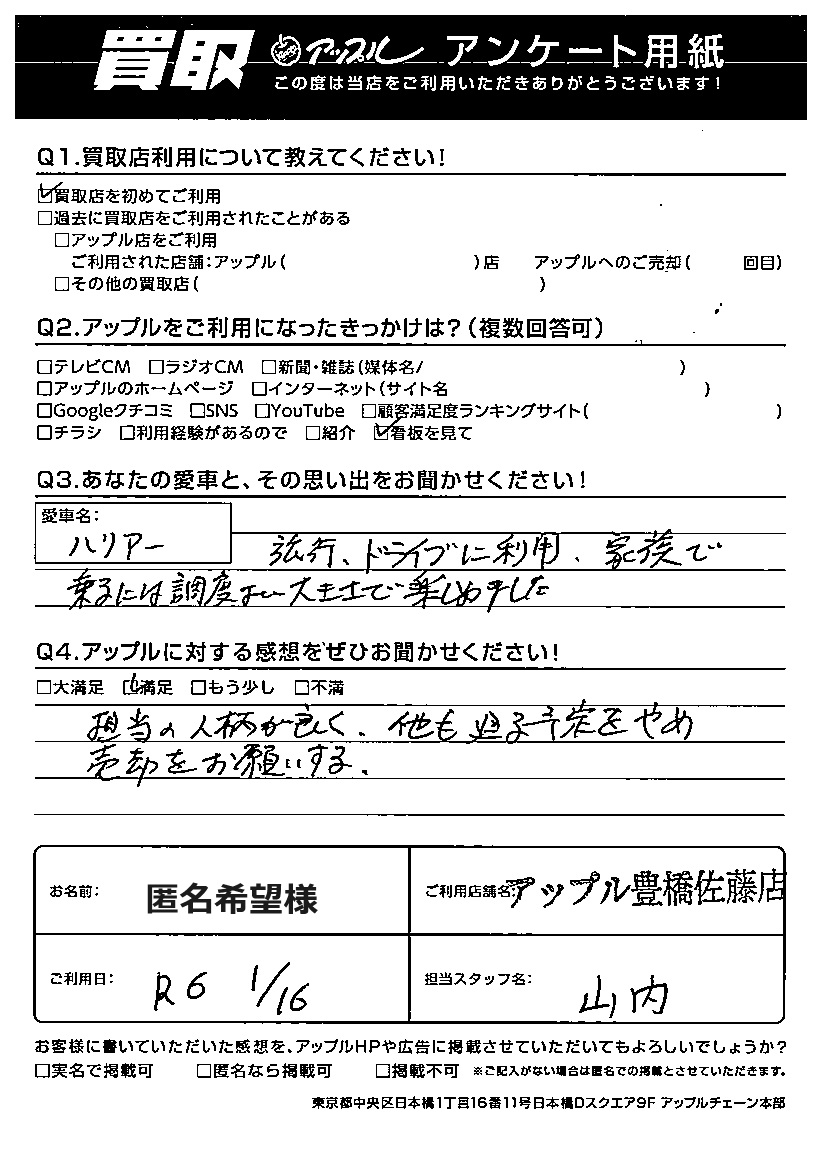 買取 アップル アンケート用紙
この度は当店をご利用いただきありがとうございます!
Q1.買取店利用について教えてください!
☑買取店を初めてご利用
□過去に買取店をご利用されたことがある
□アップル店をご利用
ご利用された店舗:アップル( )店 アップルへのご売却( 回目)
□その他の買取店( )
Q2.アップルをご利用になったきっかけは?(複数回答可)
□テレビCM □ラジオCM □新聞・雑誌(媒体名/ )
□アップルのホームページ □インターネット(サイト名 )
□Googleクチコミ □SNS □YouTube □顧客満足度ランキングサイト( )
□チラシ □利用経験があるので □紹介 ☑看板を見て
Q3.あなたの愛車と、その思い出をお聞かせください!
愛車名:
ハリアー 旅行、ドライブに利用、家族で
乗るには調度よい大きさで楽しめました
Q4.アップルに対する感想をぜひお聞かせください!
□大満足 ☑満足 □もう少し □不満
担当の人柄が良く、他も廻る予定をやめ
売却をお願いする。
お名前: 匿名希望様 ご利用店舗名:アップル豊橋佐藤店
ご利用日: R6 1/16 担当スタッフ名: 山内
お客様に書いていただいた感想を、アップルHPや広告に掲載させていただいてもよろしいでしょうか?
□実名で掲載可 □匿名なら掲載可 □掲載不可 ※ご記入がない場合は匿名での掲載とさせていただきます。
東京都中央区日本橋1丁目16番11号日本橋Dスクエア9F アップルチェーン本部